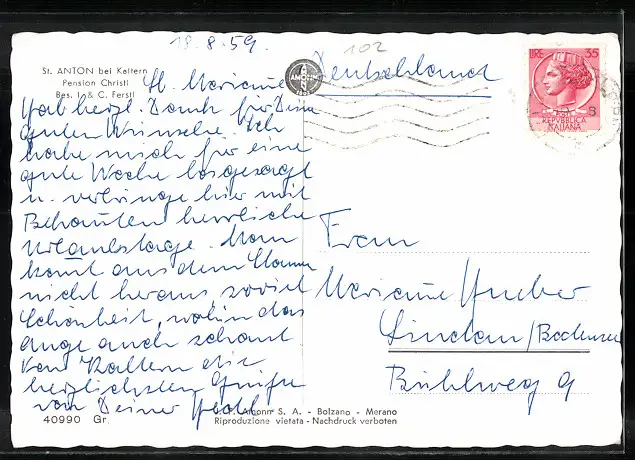 18.8.59.
102
St. ANTON bei Kaltern
Pension Christl
Bes. I. & C. Ferstl
AMONN
Deutschland
LIRE 35
POSTE
REPVBBLICA
ITALIANA
Hab herzl. Dank für Deine
guten Wünsche. Ich
habe mich für eine
gute Woche losgesagt
u. verbringe hier mit
Bekannten herrliche
Urlaubstage. Man
kommt aus dem Staunen
nicht heraus, soviel
Schönheit, wohin das
Auge auch schaut
Von Kaltern die
herzlichsten Grüße
von Deiner
Frau
Huber
Lindau/Bodensee
Bühlweg 9
40990 Gr.
Amonn S. A. - Bolzano - Merano
Riproduzione vietata - Nachdruck verboten